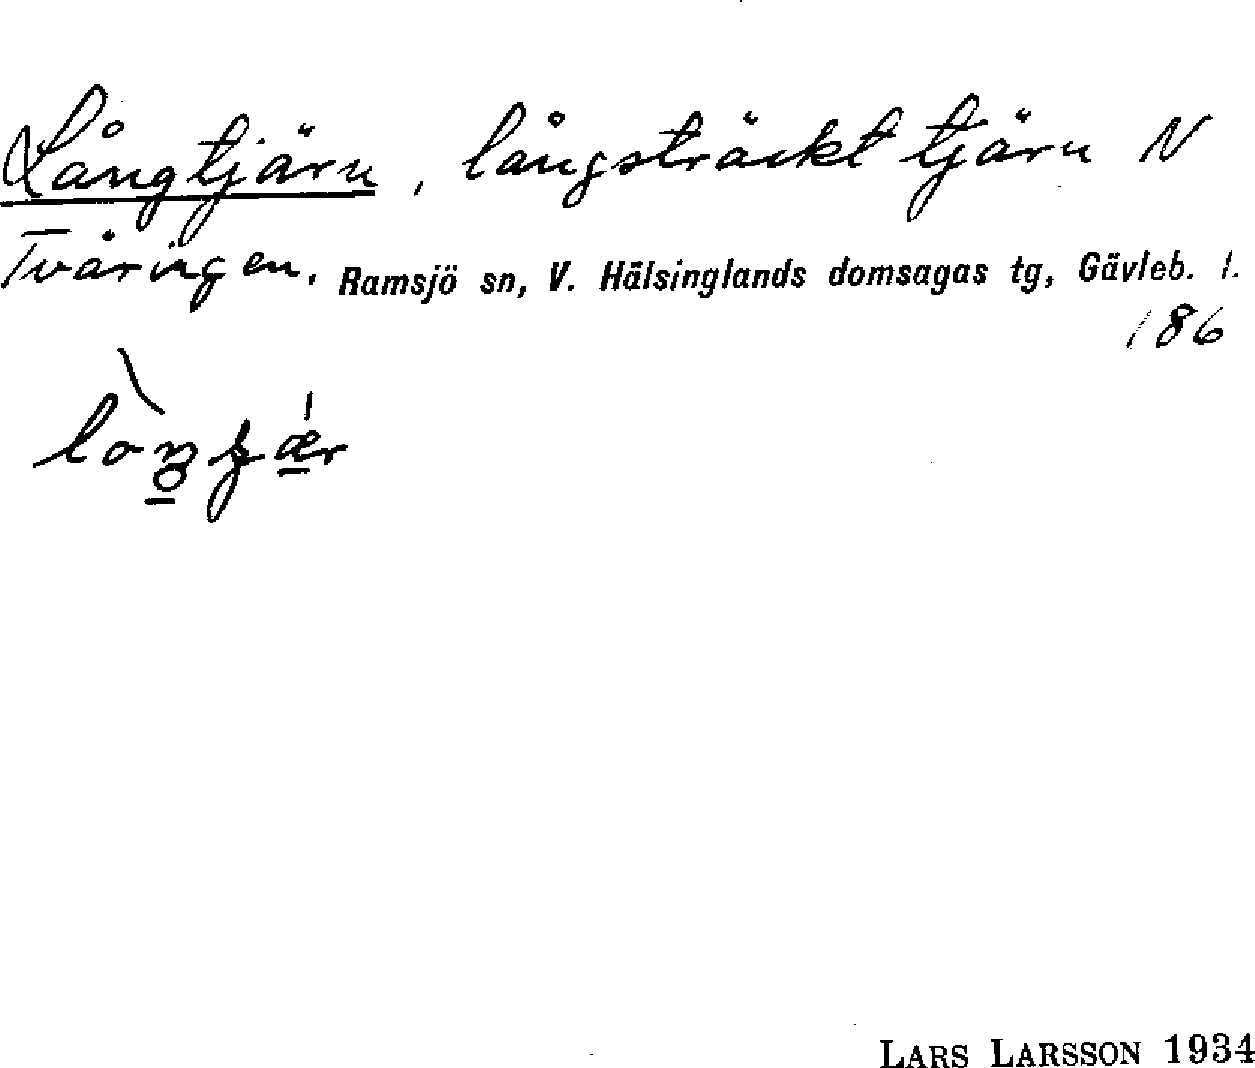 Långtjärn, långsträckt tjärn N
Tvåringen. Ramsjö sn, V. Hälsinglands domsagas tg, Gävleb. l.
186
LARS LARSSON 1934